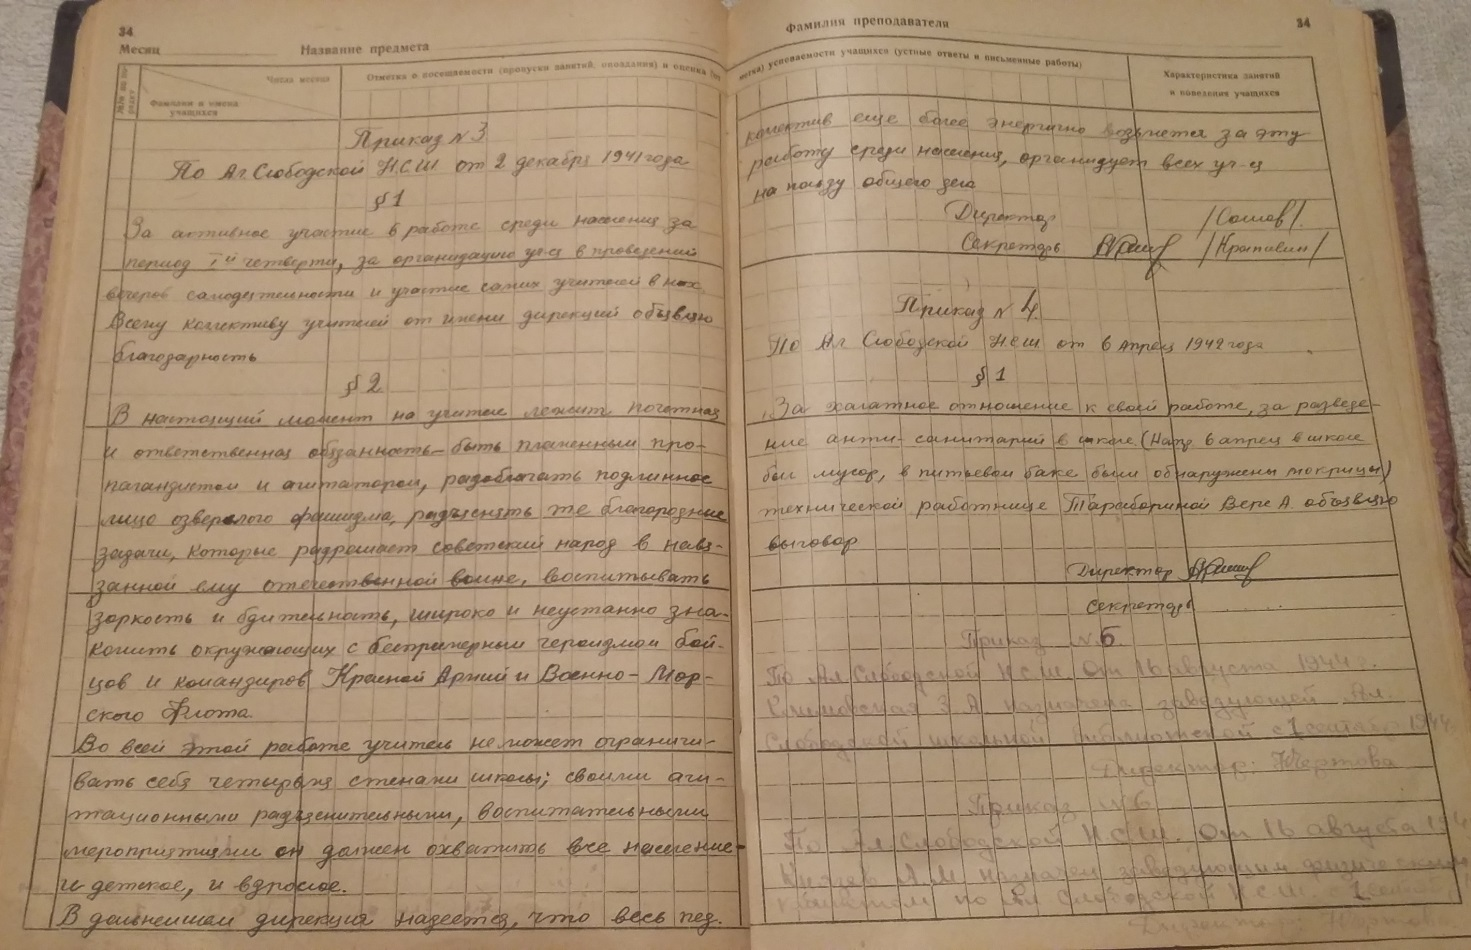 34
Месяц
Название предмета
№№ по порядку
Числа месяца
Фамилия и имена
учащихся
Отметка о посещаемости (пропуски занятий, опоздания) и оценка
Приказ №3
По Ал. Слободской Н.С.Ш от 2 декабря 1941 года
§ 1
За активное участие в работе среди населения за
период I й четверти, за организацию уч-ся в проведении
вечеров самодеятельности и участие самих учителей в них.
Всему коллективу учителей от имени дирекции объявляю
благодарность
§ 2
В настоящий момент на учителе лежит почетная
и ответственная обязанность – быть пламенным про-
пагандистом и агитатором, разоблачать подлинное
лицо озверелого фашизма, разъяснять те благородные
задачи, которые разрешает советский народ в навя-
занной ему отечественной войне, воспитывать
зоркость и бдительность, широко и неустанно зна-
комить окружающих с беспримерным героизмом бой-
цов и командиров Красной Армии и Военно-Мор-
ского Флота.
Во всей этой работе учитель не может ограничи-
вать себя четырьмя стенами школы; своими аги-
тационными разъяснительными, воспитательными
мероприятиями он должен охватить все население-
и детское, и взрослое.
В дальнейшем дирекция надеется, что весь пед.
Фамилия преподавателя
34
успеваемости учащихся (устные ответы и письменные работы)
Характеристика занятий
и поведение учащихся
коллектив еще более энергично возьмется за эту
работу среди населения, организует всех уч-ся
на пользу общего дела
Директор /Сошов/.
Секретарь /Крапивин/
Приказ № 4.
По Ал Слободской Н.С.Ш от 6 апреля 1942 года
§ 1
За халатное отношение к своей работе, за разведе-
ние анти-санитарии в школе (Напр. 6 апреля в школе
был мусор, в питьевом баке были обнаружены мокрицы)
технической работнице Тарабориной Вере А. объявляю
выговор
Директор
Секретарь
Приказ №5
По Ал. Слободской Н.С.Ш. От 16 августа 1944 г.
З.А назначена заведующей Ал.
Слободской школьной библиотекой с 1 сентября 1944
Директор: Чертова
Приказ №6
По Ал. Слободской Н.С.Ш. От 16 августа 194
Князев А.М назначен заведующим физическим
кабинетом по Ал Слободской Н.С.Ш. с 1
Директор: Чертова